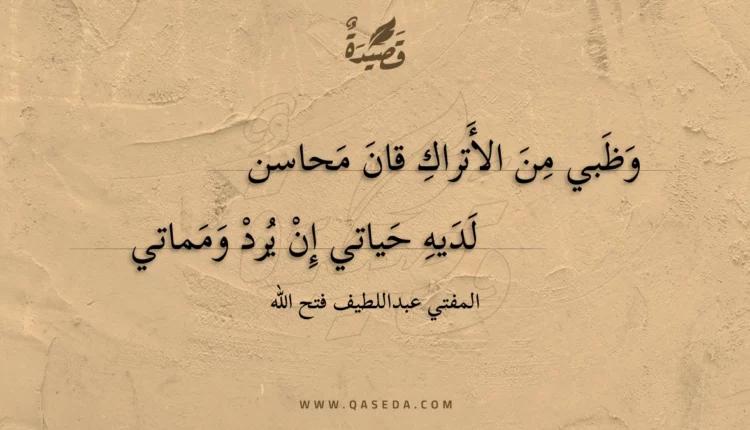 قَصِيدَةٌ
وَظَبي مِنَ الأَتراكِ قانَ مَحاسن
لَدَيهِ حَياتي إِنْ يُردْ وَمَماتي
المفتي عبداللطيف فتح الله
WWW.QASEDA.COM